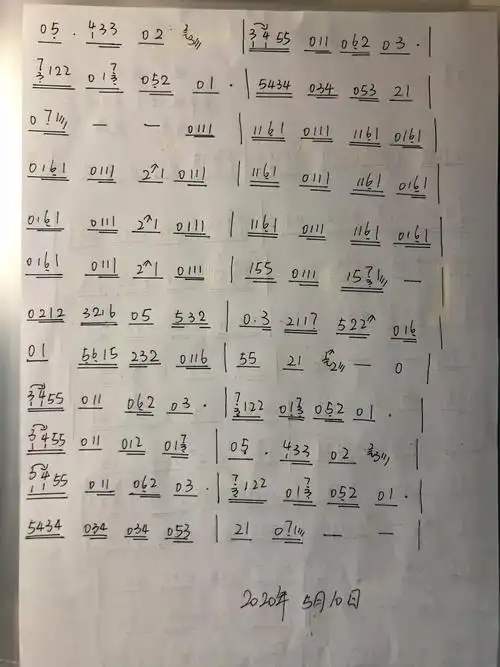 05. 433 02 3 | 3455 011 062 03. |
7122 017 052 01. | 5434 034 053 21 |
071 — — 0111 | 1161 0111 1161 0161 |
0161 0111 2↗1 0111 | 1161 0111 1161 0161 |
0161 0111 2↗1 0111 | 1161 0111 1161 0161 |
0161 0111 2↗1 0111 | 155 0111 1571 — |
0212 3216 05 532 | 0.3 2117 522↗ 016 |
01 5615 232 0116 | 55 21 2 — 0 |
3455 011 062 03. | 7122 017 052 01. |
3455 011 012 017 | 05. 433 02 3 |
3455 011 062 03. | 7122 017 052 01. |
5434 034 034 053 | 21 071 — — |
2020年 5月10日